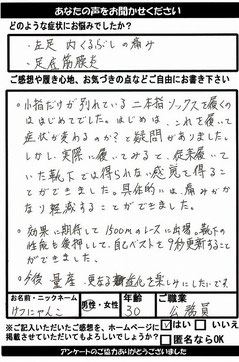 あなたの声をお聞かせください
どのような症状にお悩みでしたか?
・左足 内くるぶしの痛み
・足底筋膜炎
ご感想や履き心地、お気づきの点などご自由にお書き下さい
○小指だけが別れている二本指ソックスを履くの
ははじめてでした。はじめは、これを履いて
症状が変わるのか?と疑問がありました。
しかし、実際に履いてみると、従来履いて
いた靴下では得られない感覚を得るこ
とができました。具体的には痛みがか
なり軽減することができました。
○効果に期待して1500mのレースに出場。靴下の
性能も後押しして、自己ベストを9秒更新すること
ができました。
○今後 量産・更なる進化を楽しみにしたいです
お名前・ニックネーム
けつにゃんこ
男性・女性
年齢
30
ご職業
公務員
※ご記入いただいたご感想を、ホームページに
掲載させていただいてもよろしいでしょうか?
はい
いいえ
匿名ならOK
アンケートのご協力ありがとうございました